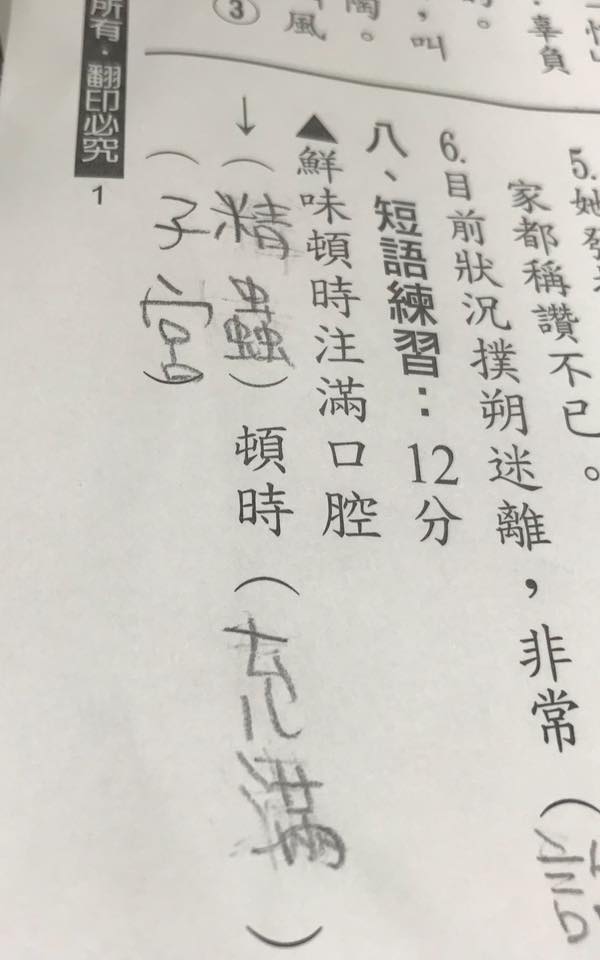 辜負
，叫
陶。
風
③
5.她發
家都稱讚不已。
6.目前狀況撲朔迷離，非常（
八、短語練習：12分
▲鮮味頓時注滿口腔
↓（精蟲）頓時（充滿）
（子宮）
所有．翻印必究
1